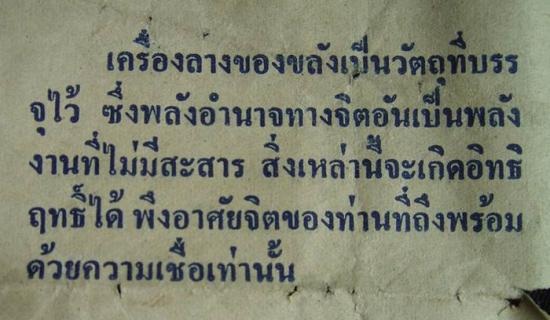 เครื่องลางของขลังเป็นวัตถุที่บรร
จุไว้ ซึ่งพลังอำนาจทางจิตอันเป็นพลัง
งานที่ไม่มีสะสาร สิ่งเหล่านี้จะเกิดอิทธิ
ฤทธิ์ได้ พึงอาศัยจิตของท่านที่ถึงพร้อม
ด้วยความเชื่อเท่านั้น